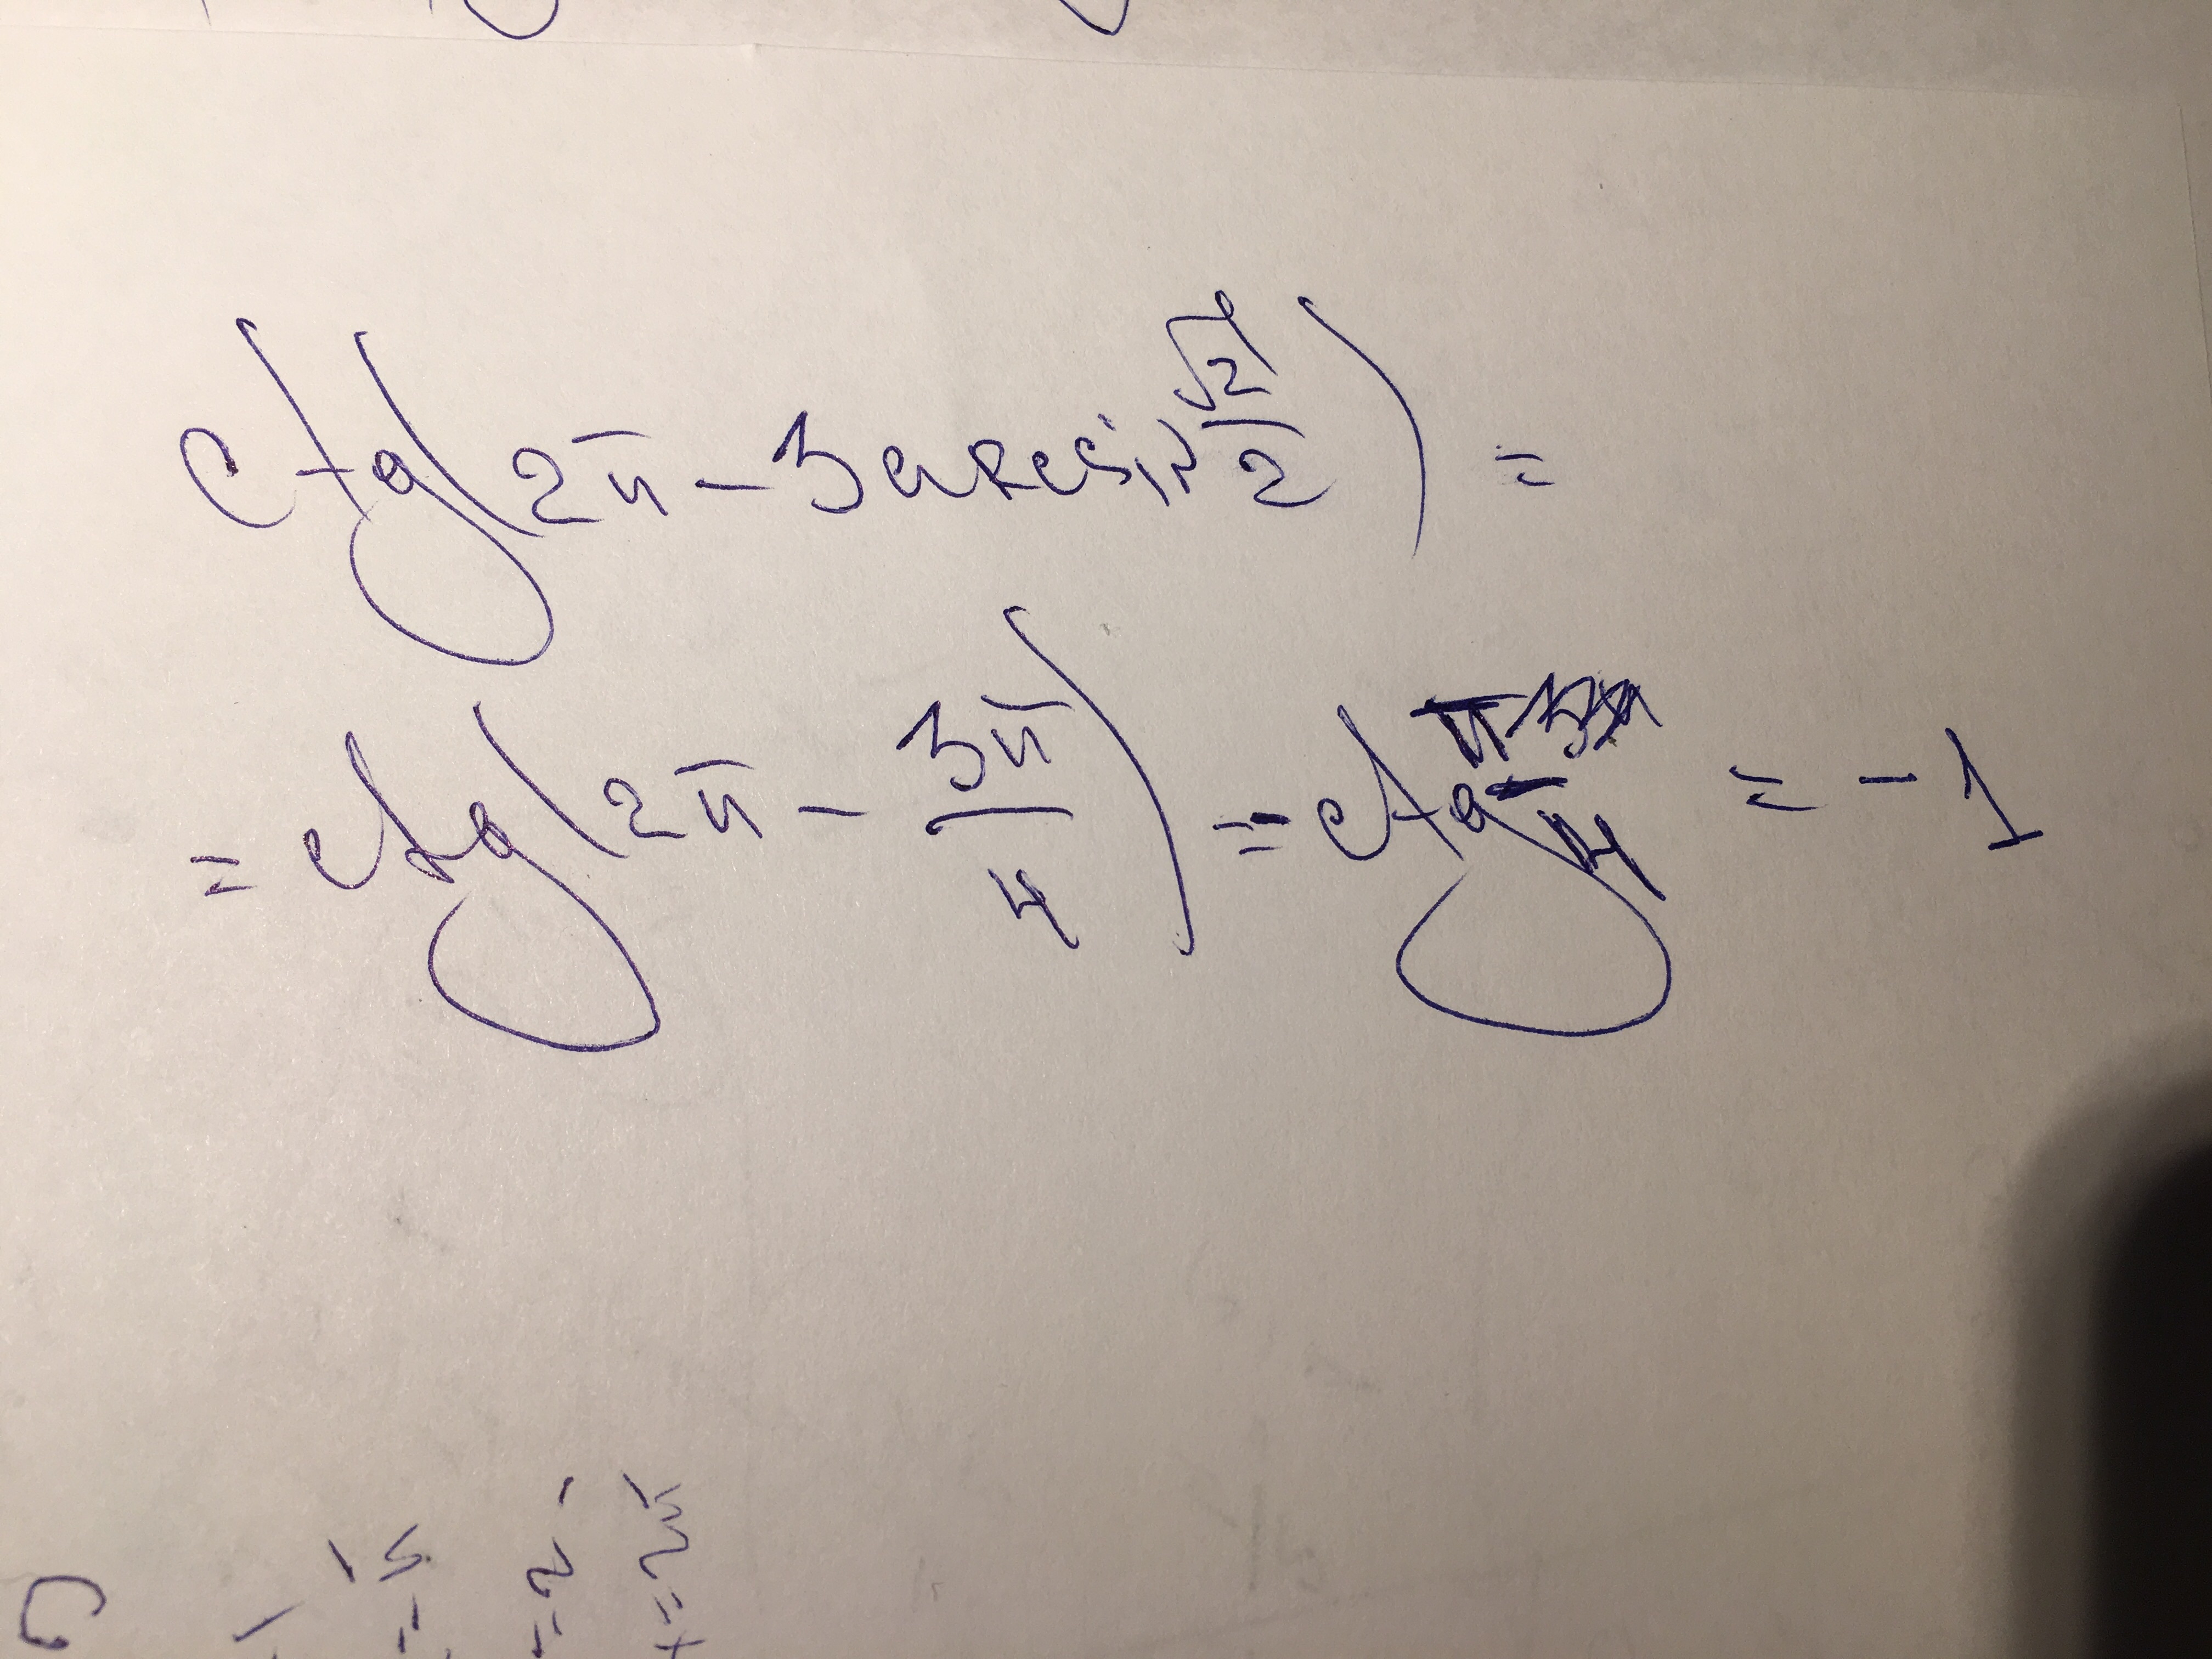 ctg(2π - 3 arcsin √2/2) =
= ctg(2π - 3π/4) = ctg π/4 = -1